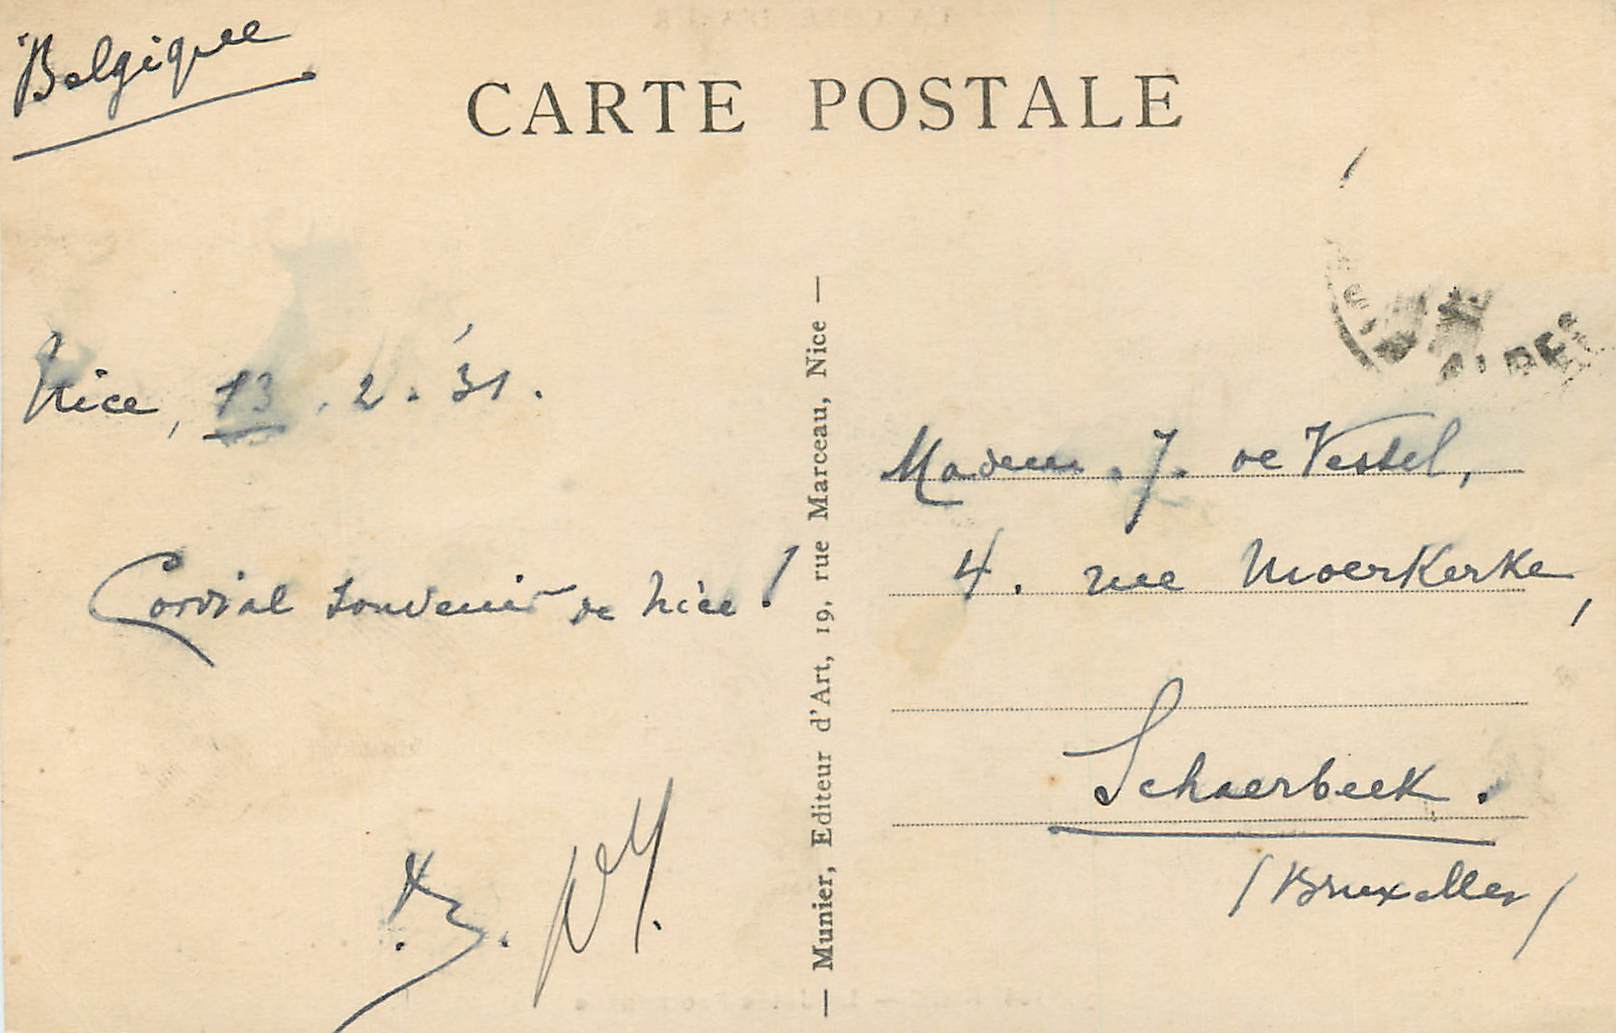 Belgique
CARTE POSTALE
Nice, 13.2.31.
Cordial souvenir de Nice!
— Munier, Editeur d'Art, 19, rue Marceau, Nice —
ALPES
Madame J. de Vestel,
4. rue Moerkerke,
Schaerbeek.
(Bruxelles)